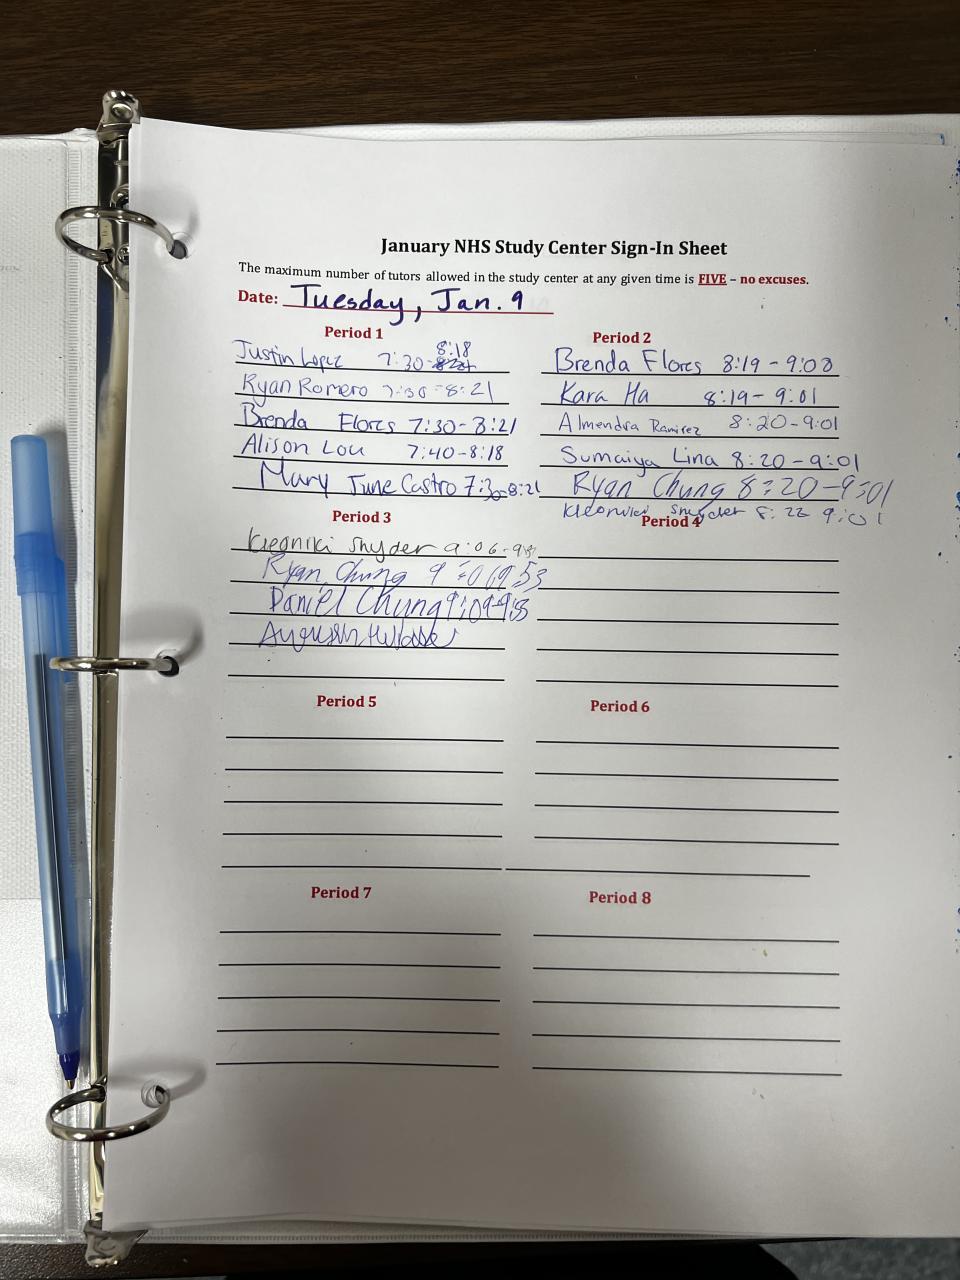 January NHS Study Center Sign-In Sheet
The maximum number of tutors allowed in the study center at any given time is FIVE – no excuses.
Date: Tuesday, Jan. 9
Period 1
8:18
Justin Lopez 7:30-
Ryan Romero 7:30-8:21
Brenda Flores 7:30-8:21
Alison Lou 7:40-8:18
Mary June Castro 7:30-8:21
Period 2
Brenda Flores 8:19-9:00
Kara Ha 8:19-9:01
Almendra Ramirez 8:20-9:01
Sumaiya Lina 8:20-9:01
Ryan Chung 8:20-9:01
Snyder 8:22 9:01
Period 3
Kleoniki Snyder 9:06-
Ryan Chung 9:06 9:53
Daniel Chung 9:09-
Period 4
Period 5
Period 6
Period 7
Period 8